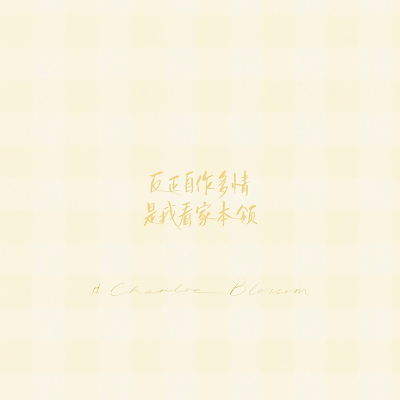 反正自作多情
是我看家本领
# Charlie Blossom